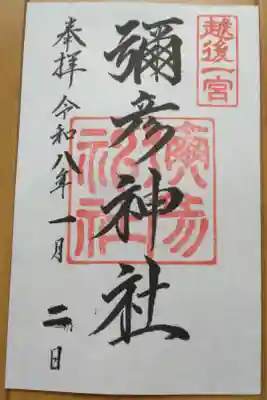 越後一宮
彌彦神社
奉拝 令和八年一月二日